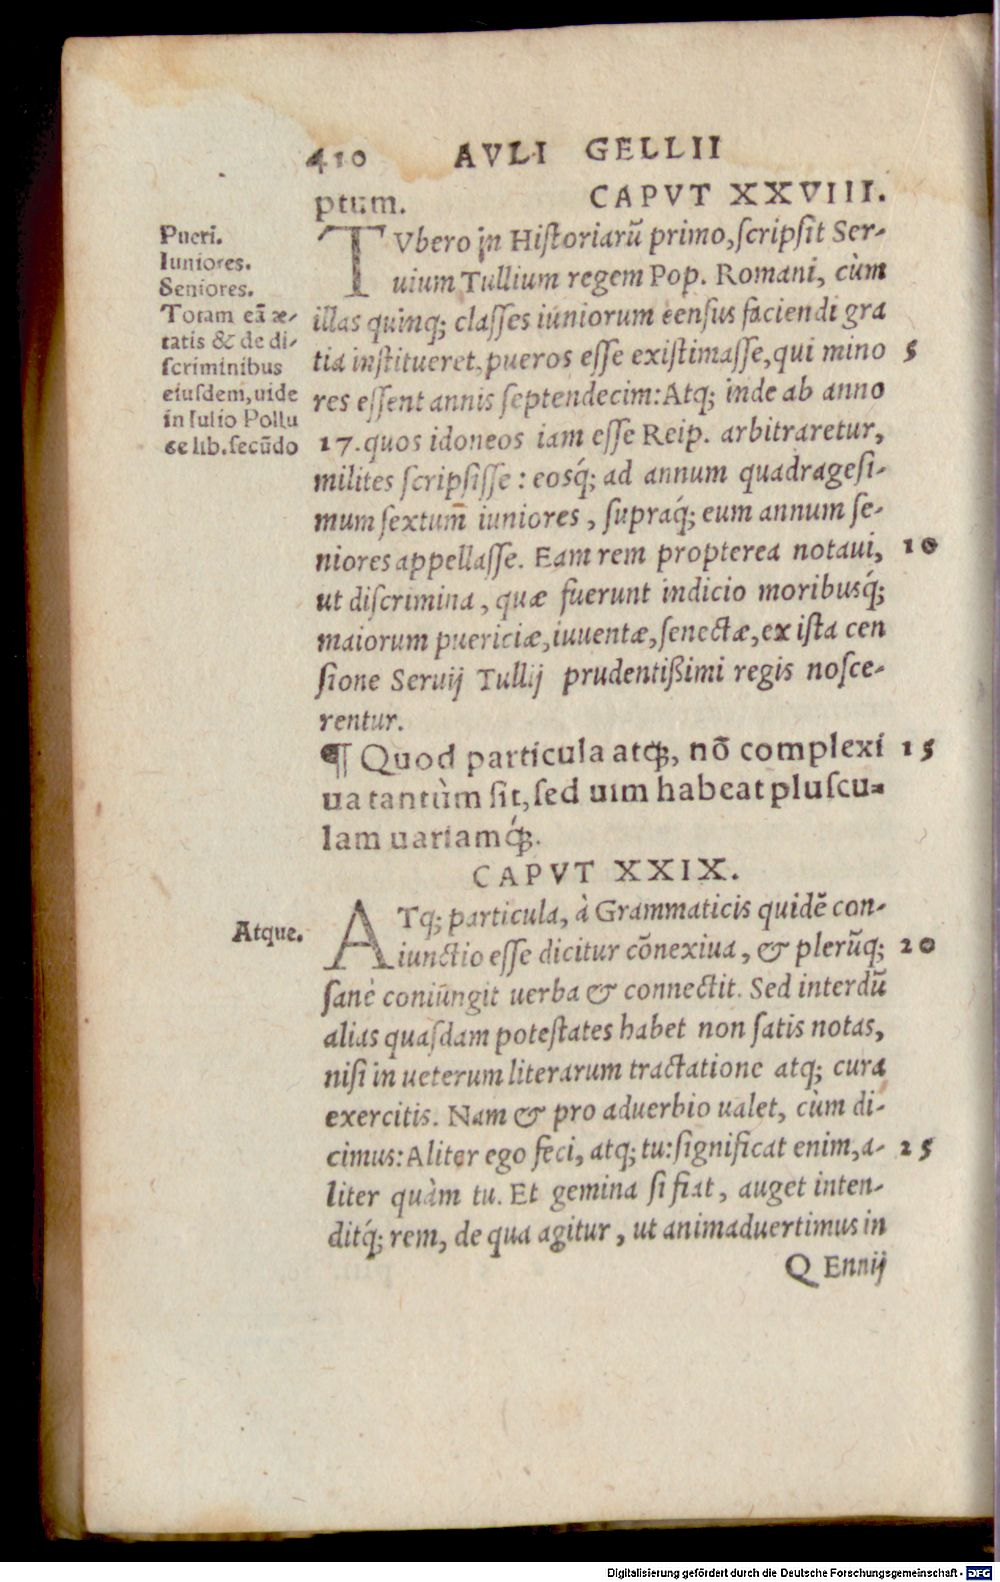 410 AVLI GELLII
ptum. CAPVT XXVIII.
TVbero in Historiarũ primo, scripsit Ser-
uium Tullium regem Pop. Romani, cùm
illas quinq; classes iuniorum census faciendi gra
tia institueret, pueros esse existimasse, qui mino 5
res essent annis septendecim: Atq; inde ab anno
17. quos idoneos iam esse Reip. arbitraretur,
milites scripsisse: eosq́; ad annum quadragesi-
mum sextum̄ iuniores, supraq́; eum annum se-
niores appellasse. Eam rem propterea notaui, 10
ut discrimina, quæ fuerunt indicio moribusq́;
maiorum puericiæ, iuuentæ, senectæ, ex ista cen
sione Seruij Tullij prudentißimi regis nosce-
rentur.
Pueri.
Iuniores.
Seniores.
Totam eã æ-
tatis & de di-
scriminibus
eiusdem, uide
in Iulio Pollu
ce lib. secũdo
¶ Quod particula atq;, nõ complexi 15
ua tantùm sit, sed uim habeat pluscu-
lam uariamq́;.
CAPVT XXIX.
Atque.
ATq; particula, à Grammaticis quidẽ con-
iunctio esse dicitur cõnexiua, & plerũq; 20
sanè coniũngit uerba & connectit. Sed interdũ
alias quasdam potestates habet non satis notas,
nisi in ueterum literarum tractatione atq; cura
exercitis. Nam & pro aduerbio ualet, cùm di-
cimus: Aliter ego feci, atq; tu: significat enim, a- 25
liter quàm tu. Et gemina si fiat, auget inten-
ditq́; rem, de qua agitur, ut animaduertimus in
Q Ennij
Digitalisierung gefördert durch die Deutsche Forschungsgemeinschaft - DFG